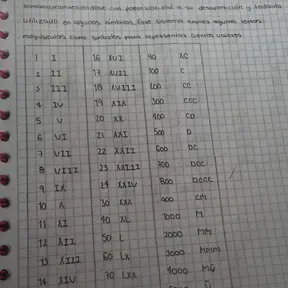 romano, manteniéndose con posterioridad a su desaparición y todavía
utilizado en algunos ámbitos. Este sistema emplea algunas letras
mayúsculas como símbolos para representar ciertos valores
1 I 16 XVI 90 XC
2 II 17 XVII 100 C
3 III 18 XVIII 200 CC
4 IV 19 XIX 300 CCC
5 V 20 XX 400 CD
6 VI 21 XXI 500 D
7 VII 22 XXII 600 DC
8 VIII 23 XXIII 700 DCC
9 IX 24 XXIV 800 DCCC
10 X 30 XXX 900 CM
11 XI 40 XL 1000 M
12 XII 50 L 2000 MM
13 XIII 60 LX 3000 MMM
14 XIV 70 LXX 4000